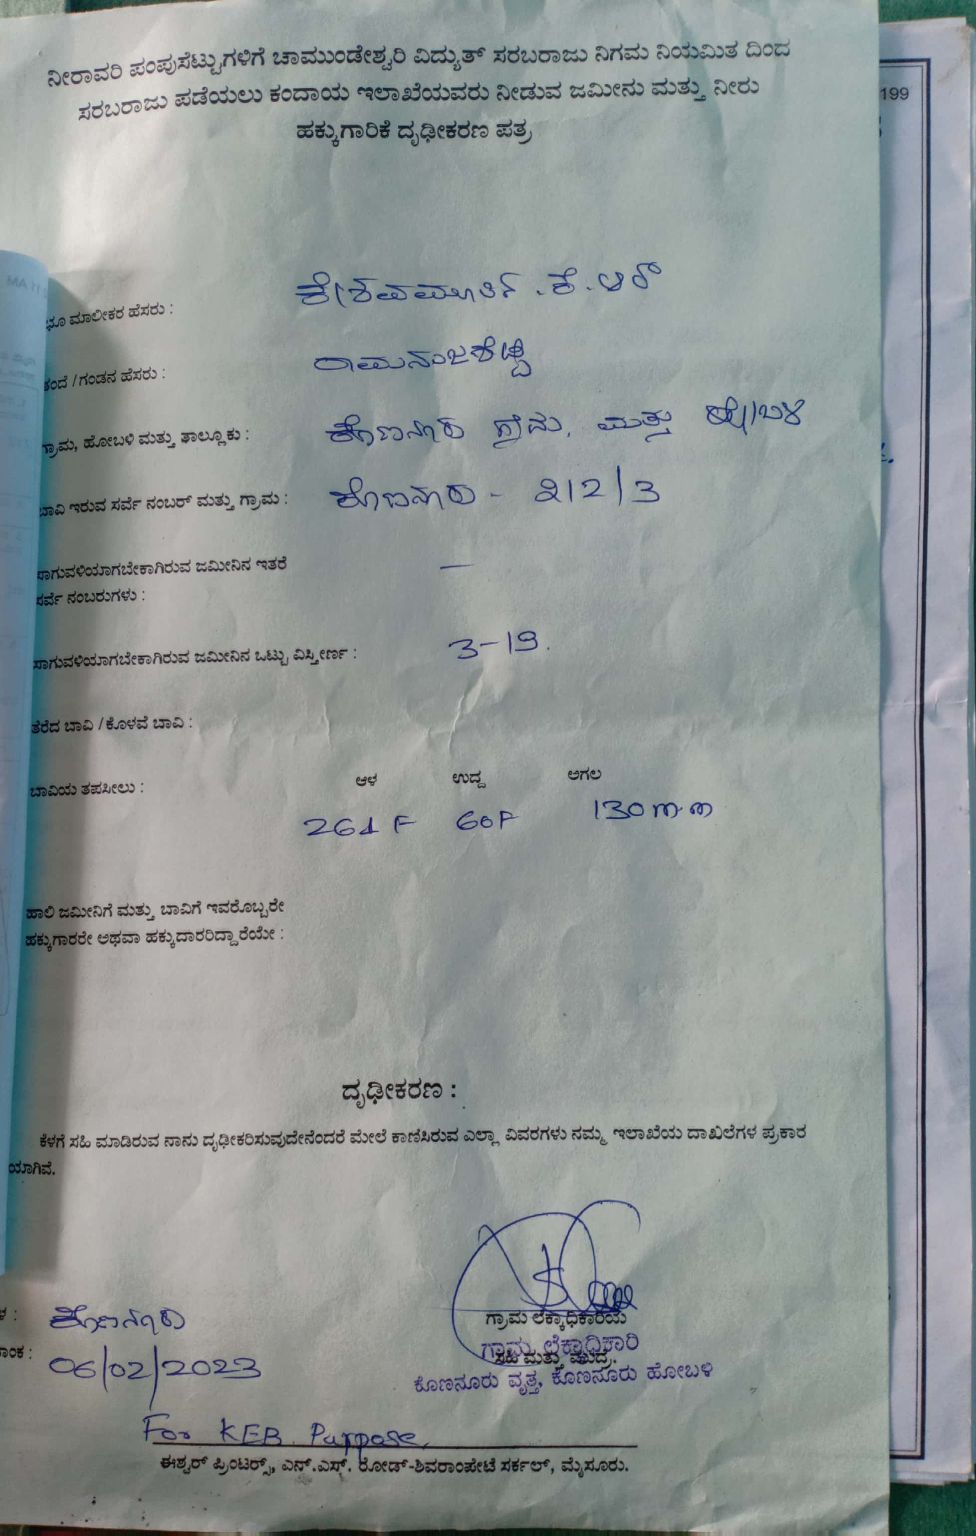 199
ನೀರಾವರಿ ಪಂಪುಸೆಟ್ಟುಗಳಿಗೆ ಚಾಮುಂಡೇಶ್ವರಿ ವಿದ್ಯುತ್ ಸರಬರಾಜು ನಿಗಮ ನಿಯಮಿತ ದಿಂದ
ಸರಬರಾಜು ಪಡೆಯಲು ಕಂದಾಯ ಇಲಾಖೆಯವರು ನೀಡುವ ಜಮೀನು ಮತ್ತು ನೀರು
ಹಕ್ಕುಗಾರಿಕೆ ದೃಢೀಕರಣ ಪತ್ರ
ಭೂ ಮಾಲೀಕರ ಹೆಸರು : ಕೇಶವಮೂರ್ತಿ . ಕೆ . ಆರ್
ತಂದೆ / ಗಂಡನ ಹೆಸರು :
ಗ್ರಾಮ, ಹೋಬಳಿ ಮತ್ತು ತಾಲ್ಲೂಕು : ಕೊಣನೂರು ಗ್ರಾಮ, ಮತ್ತು ಹೋಬಳಿ
ಬಾವಿ ಇರುವ ಸರ್ವೆ ನಂಬರ್ ಮತ್ತು ಗ್ರಾಮ : ಕೊಣನೂರು - 212/3
ಸಾಗುವಳಿಯಾಗಬೇಕಾಗಿರುವ ಜಮೀನಿನ ಇತರೆ —
ಸರ್ವೆ ನಂಬರುಗಳು :
ಸಾಗುವಳಿಯಾಗಬೇಕಾಗಿರುವ ಜಮೀನಿನ ಒಟ್ಟು ವಿಸ್ತೀರ್ಣ : 3-19.
ತೆರೆದ ಬಾವಿ / ಕೊಳವೆ ಬಾವಿ :
ಬಾವಿಯ ತಪಸೀಲು : ಆಳ ಉದ್ದ ಅಗಲ
264 F 60F 130 m.m
ಹಾಲಿ ಜಮೀನಿಗೆ ಮತ್ತು ಬಾವಿಗೆ ಇವರೊಬ್ಬರೇ
ಹಕ್ಕುಗಾರರೇ ಅಥವಾ ಹಕ್ಕುದಾರರಿದ್ದಾರೆಯೇ :
ದೃಢೀಕರಣ :
ಕೆಳಗೆ ಸಹಿ ಮಾಡಿರುವ ನಾನು ದೃಢೀಕರಿಸುವುದೇನೆಂದರೆ ಮೇಲೆ ಕಾಣಿಸಿರುವ ಎಲ್ಲಾ ವಿವರಗಳು ನಮ್ಮ ಇಲಾಖೆಯ ದಾಖಲೆಗಳ ಪ್ರಕಾರ
ಯಾಗಿವೆ.
ಕೊಣನೂರು
06/02/2023
ಗ್ರಾಮ ಲೆಕ್ಕಾಧಿಕಾರಿಯ
ಗ್ರಾಮ ಲೆಕ್ಕಾಧಿಕಾರಿ
ಸಹಿ ಮತ್ತು ಮುದ್ರೆ.
ಕೊಣನೂರು ವೃತ್ತ, ಕೊಣನೂರು ಹೋಬಳಿ
For KEB Purpose,
ಈಶ್ವರ್ ಪ್ರಿಂಟರ್ಸ್, ಎನ್.ಎಸ್. ರೋಡ್-ಶಿವರಾಂಪೇಟೆ ಸರ್ಕಲ್, ಮೈಸೂರು.